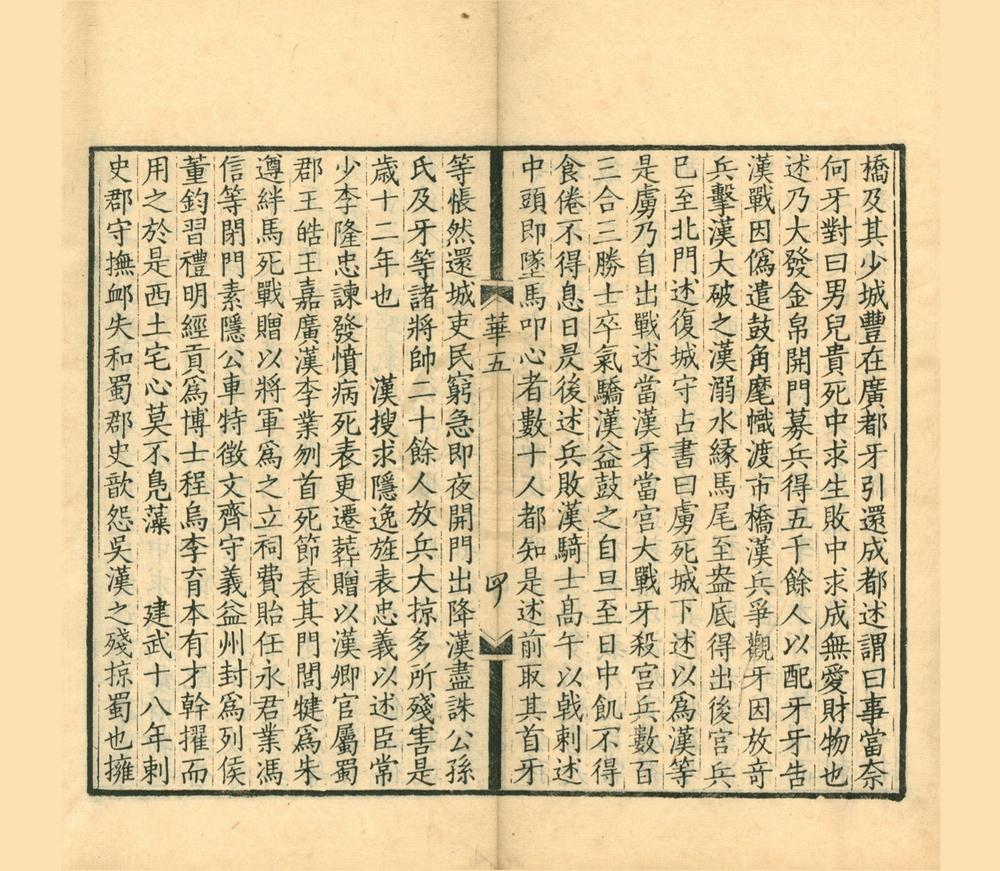 橋及其少城豐在廣都牙引還成都述謂曰事當奈
何牙對曰男兒貴死中求生敗中求成無愛財物也
述乃大發金帛開門募兵得五千餘人以配牙牙告
漢戰因僞遣鼓角麾幟渡市橋漢兵爭觀牙因放奇
兵擊漢大破之漢溺水緣馬尾至盎底得出後宫兵
已至北門述復城守占書曰虜死城下述以爲漢等
是虜乃自出戰述當漢牙當宫大戰牙殺宫兵數百
三合三勝士卒氣驕漢益鼓之自旦至日中飢不得
食倦不得息日昃後述兵敗漢騎士髙午以戟刺述
中頭即墜馬叩心者數十人都知是述前取其首牙
華五
四
等悵然還城吏民窮急即夜開門出降漢盡誅公孫
氏及牙等諸將帥二十餘人放兵大掠多所殘害是
歲十二年也　漢搜求隱逸旌表忠義以述臣常
少李隆忠諫發憤病死表更遷葬贈以漢卿官屬蜀
郡王皓王嘉廣漢李業刎首死節表其門閭犍爲朱
遵絆馬死戰贈以將軍爲之立祠費貽任永君業馮
信等閉門素隱公車特徵文齊守義益州封爲列侯
董鈞習禮明經貢爲博士程烏李育本有才幹擢而
用之於是西土宅心莫不鳧藻　建武十八年刺
史郡守撫卹失和蜀郡史歆怨吳漢之殘掠蜀也擁